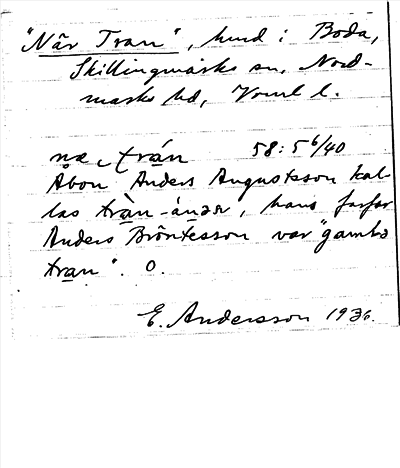 "När Tran", hund i Boda,
Skillingmarks sn, Nord-
marks hd, Vrml l.
næ trán 58:5 6/40
Åbon Anders Augustsson kal-
las tràn-ánəʂ, hans farfar
Anders Bröntesson var "gambə
tran". O.
E. Andersson 1936.